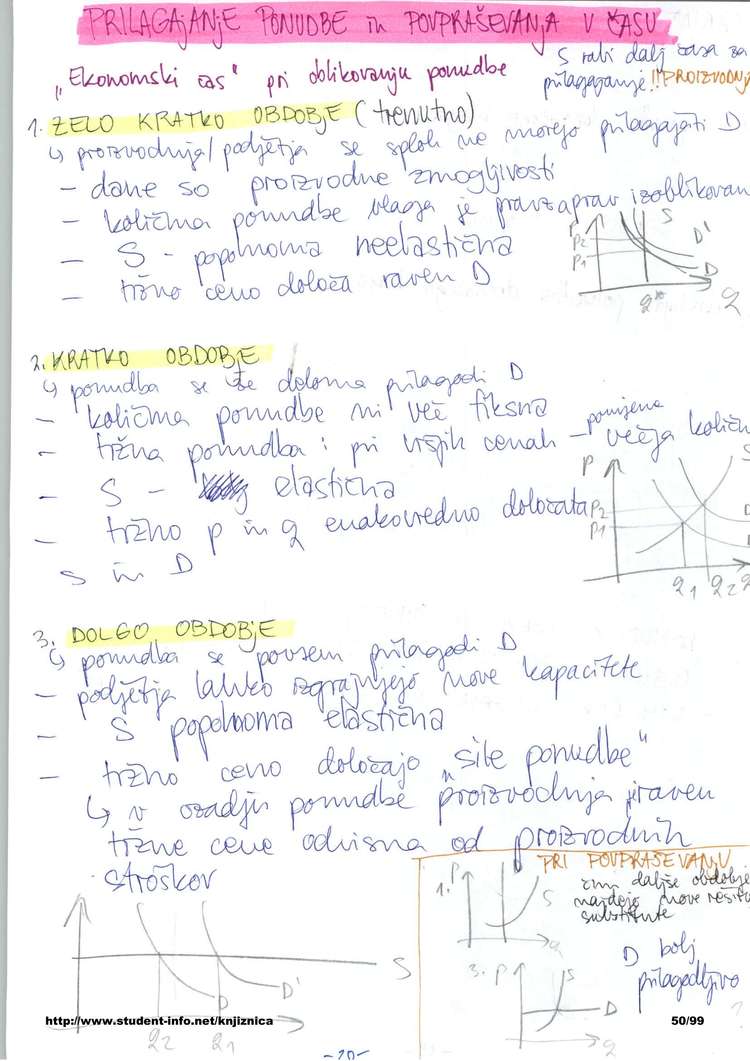 PRILAGAJANJE PONUDBE in POVPRAŠEVANJA V ČASU
"Ekonomski čas" pri oblikovanju ponudbe
S rabi dalj časa za
prilagajanje!! PROIZVODNJ
1. ZELO KRATKO OBDOBJE (trenutno)
↳ proizvodnja/podjetja se sploh ne morejo prilagajati D
- dane so proizvodne zmogljivosti
- količina ponudbe blaga je pravzaprav izoblikovan
- S - popolnoma neelastična
- tržno ceno določa raven D
P2
P1
S
D'
D
q*
q
2. KRATKO OBDOBJE
↳ ponudba se že deloma prilagodi D
- količina ponudbe ni več fiksna
- tržna ponudba: pri višjih cenah - ponujena večja količin
- S - elastična
- tržno p in q enakovredno določata
S in D
P
P2
P1
S
D
q1 q2 q
3. DOLGO OBDOBJE
↳ ponudba se povsem prilagodi D
- podjetja lahko izgrajujejo nove kapacitete
- S popolnoma elastična
- tržno ceno določajo "sile ponudbe"
↳ v ozadju ponudbe proizvodnja, raven
tržne cene odvisna od proizvodnih
stroškov
S
D D'
q2 q1
PRI POVPRAŠEVANJU
daljše obdobje
najdejo nove rešitv
substitute
1. P
D
S
q
D bolj
prilagodljivo
3. P
S
D
q
http://www.student-info.net/knjiznica
50/99
-20-